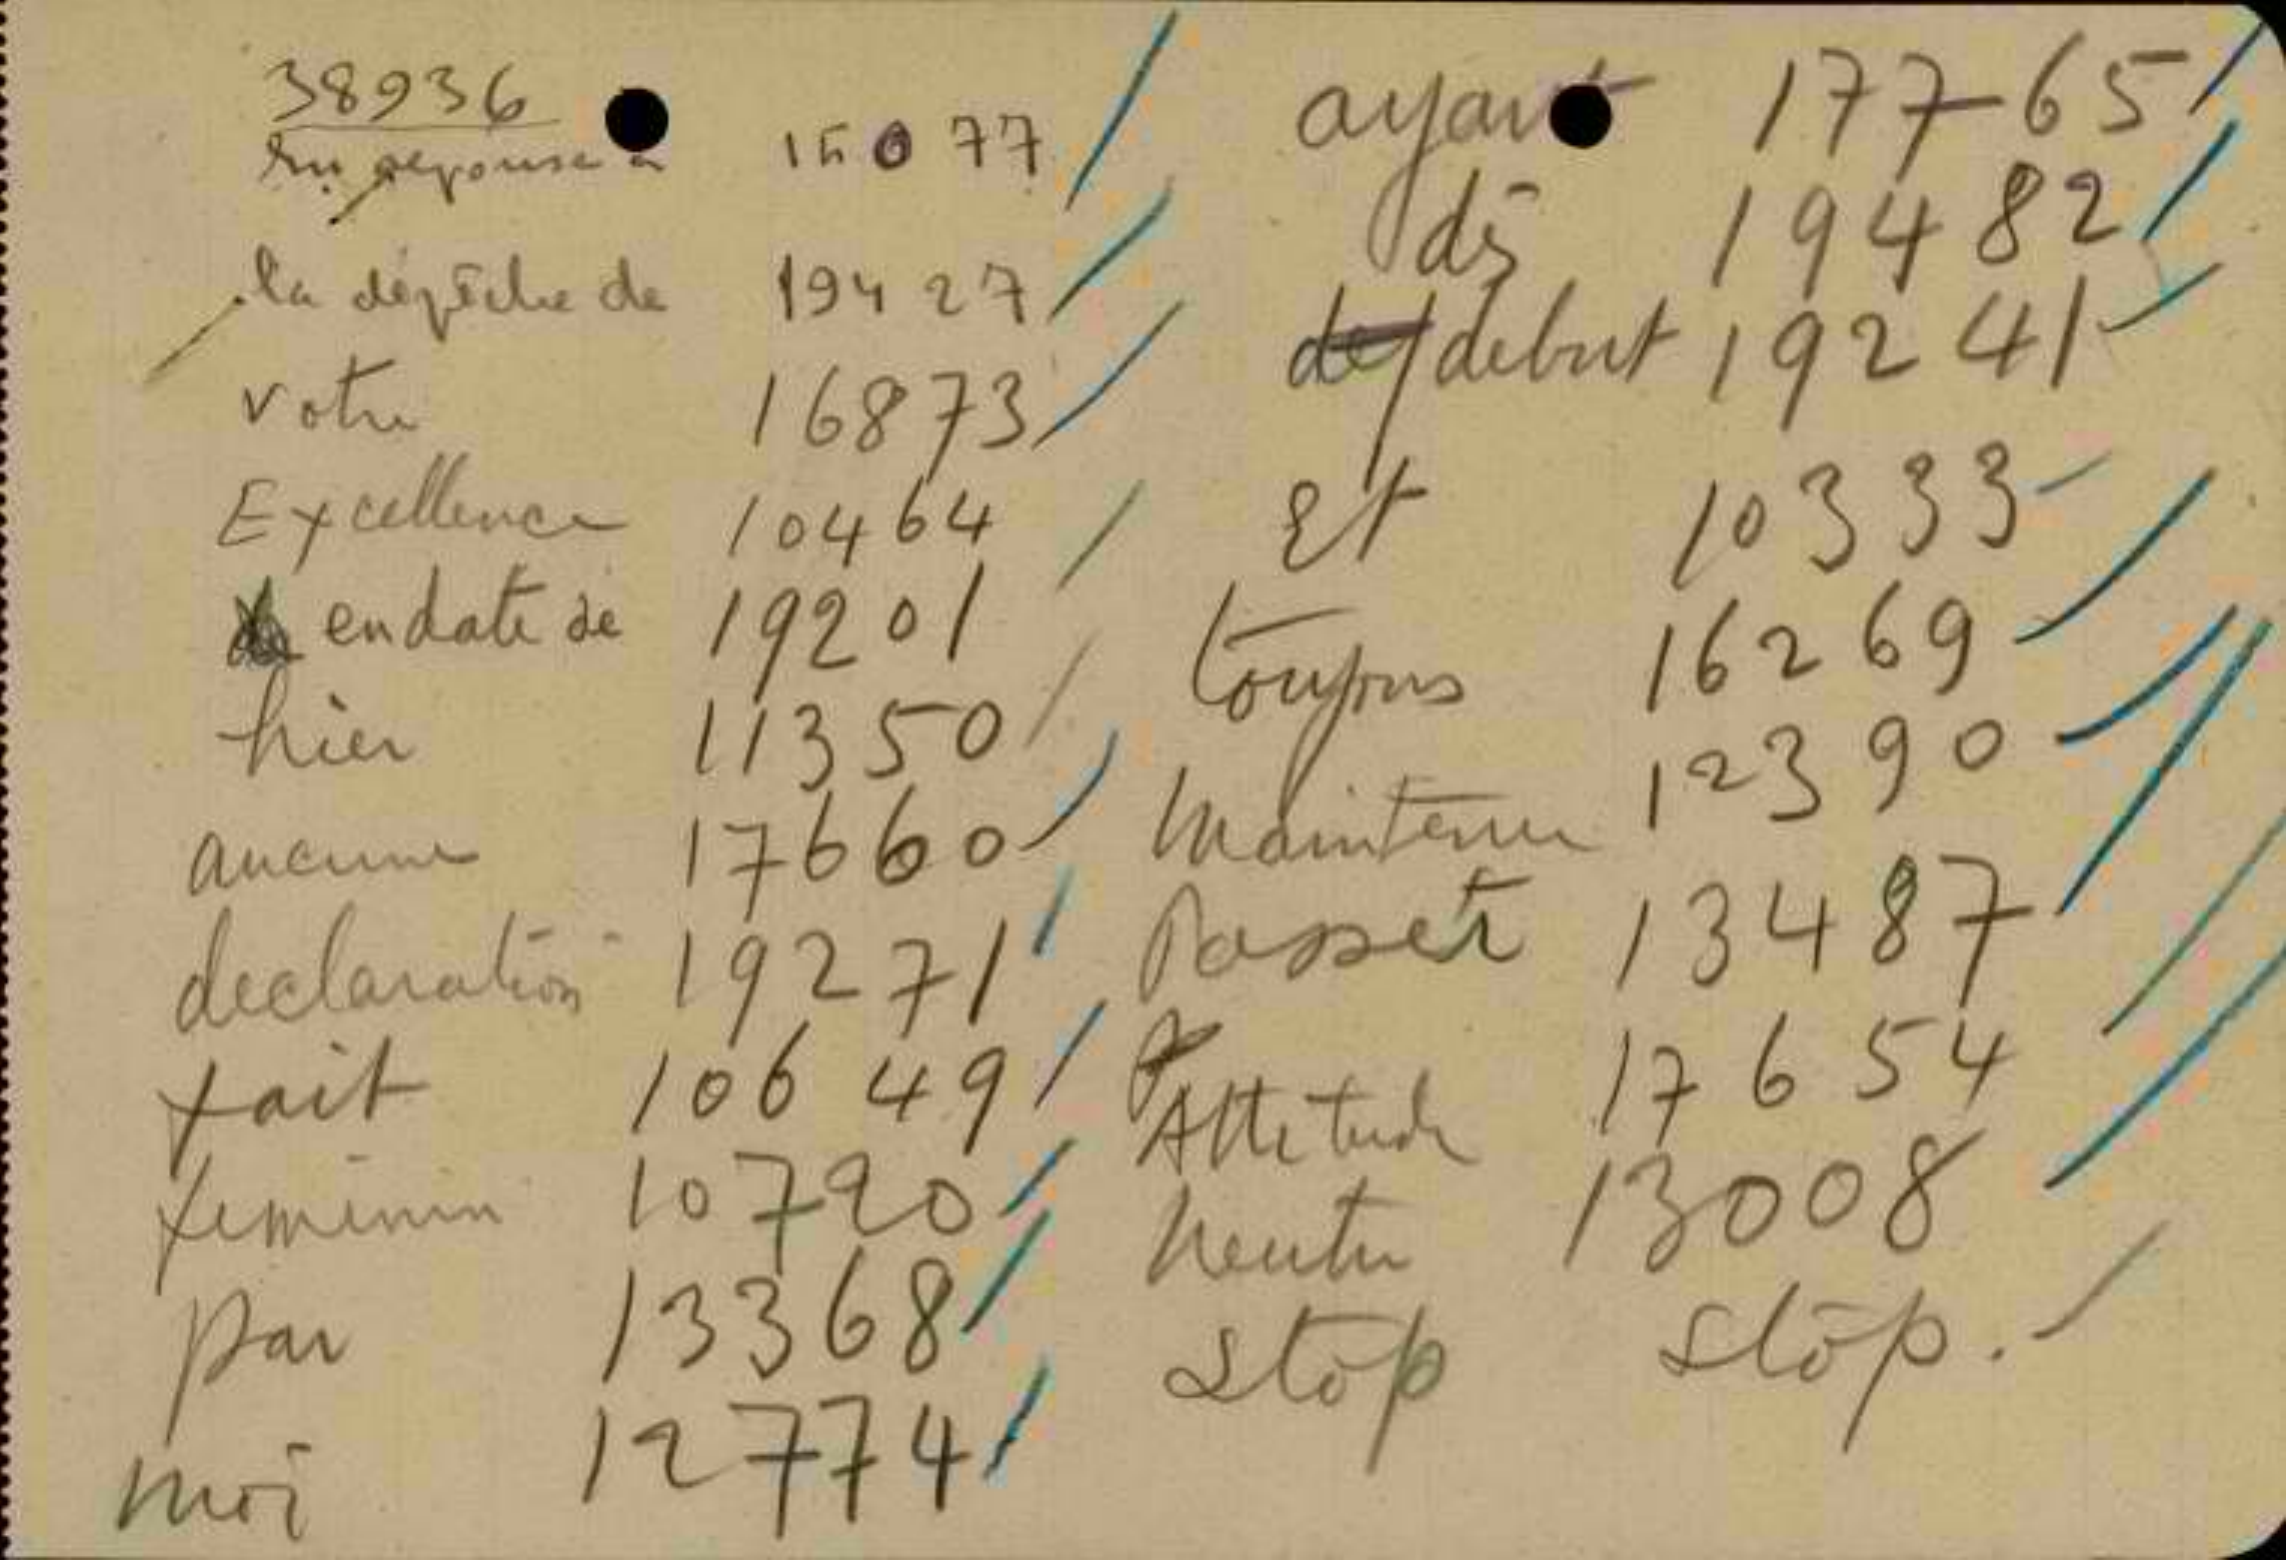 38936
En réponse à 15077
la dépêche de 19427
votre 16873
Excellence 10464
en date de 19201
hier 11350
aucune 17660
declaration 19271
fait 10649
feminin 10790
par 13368
moi 12774
ayant 17765
dès 19482
debut 19241
Et 10333
toujours 16269
Maintenu 12390
Passer 13487
Attitude 17654
Neutre 13008
Stop Stop.